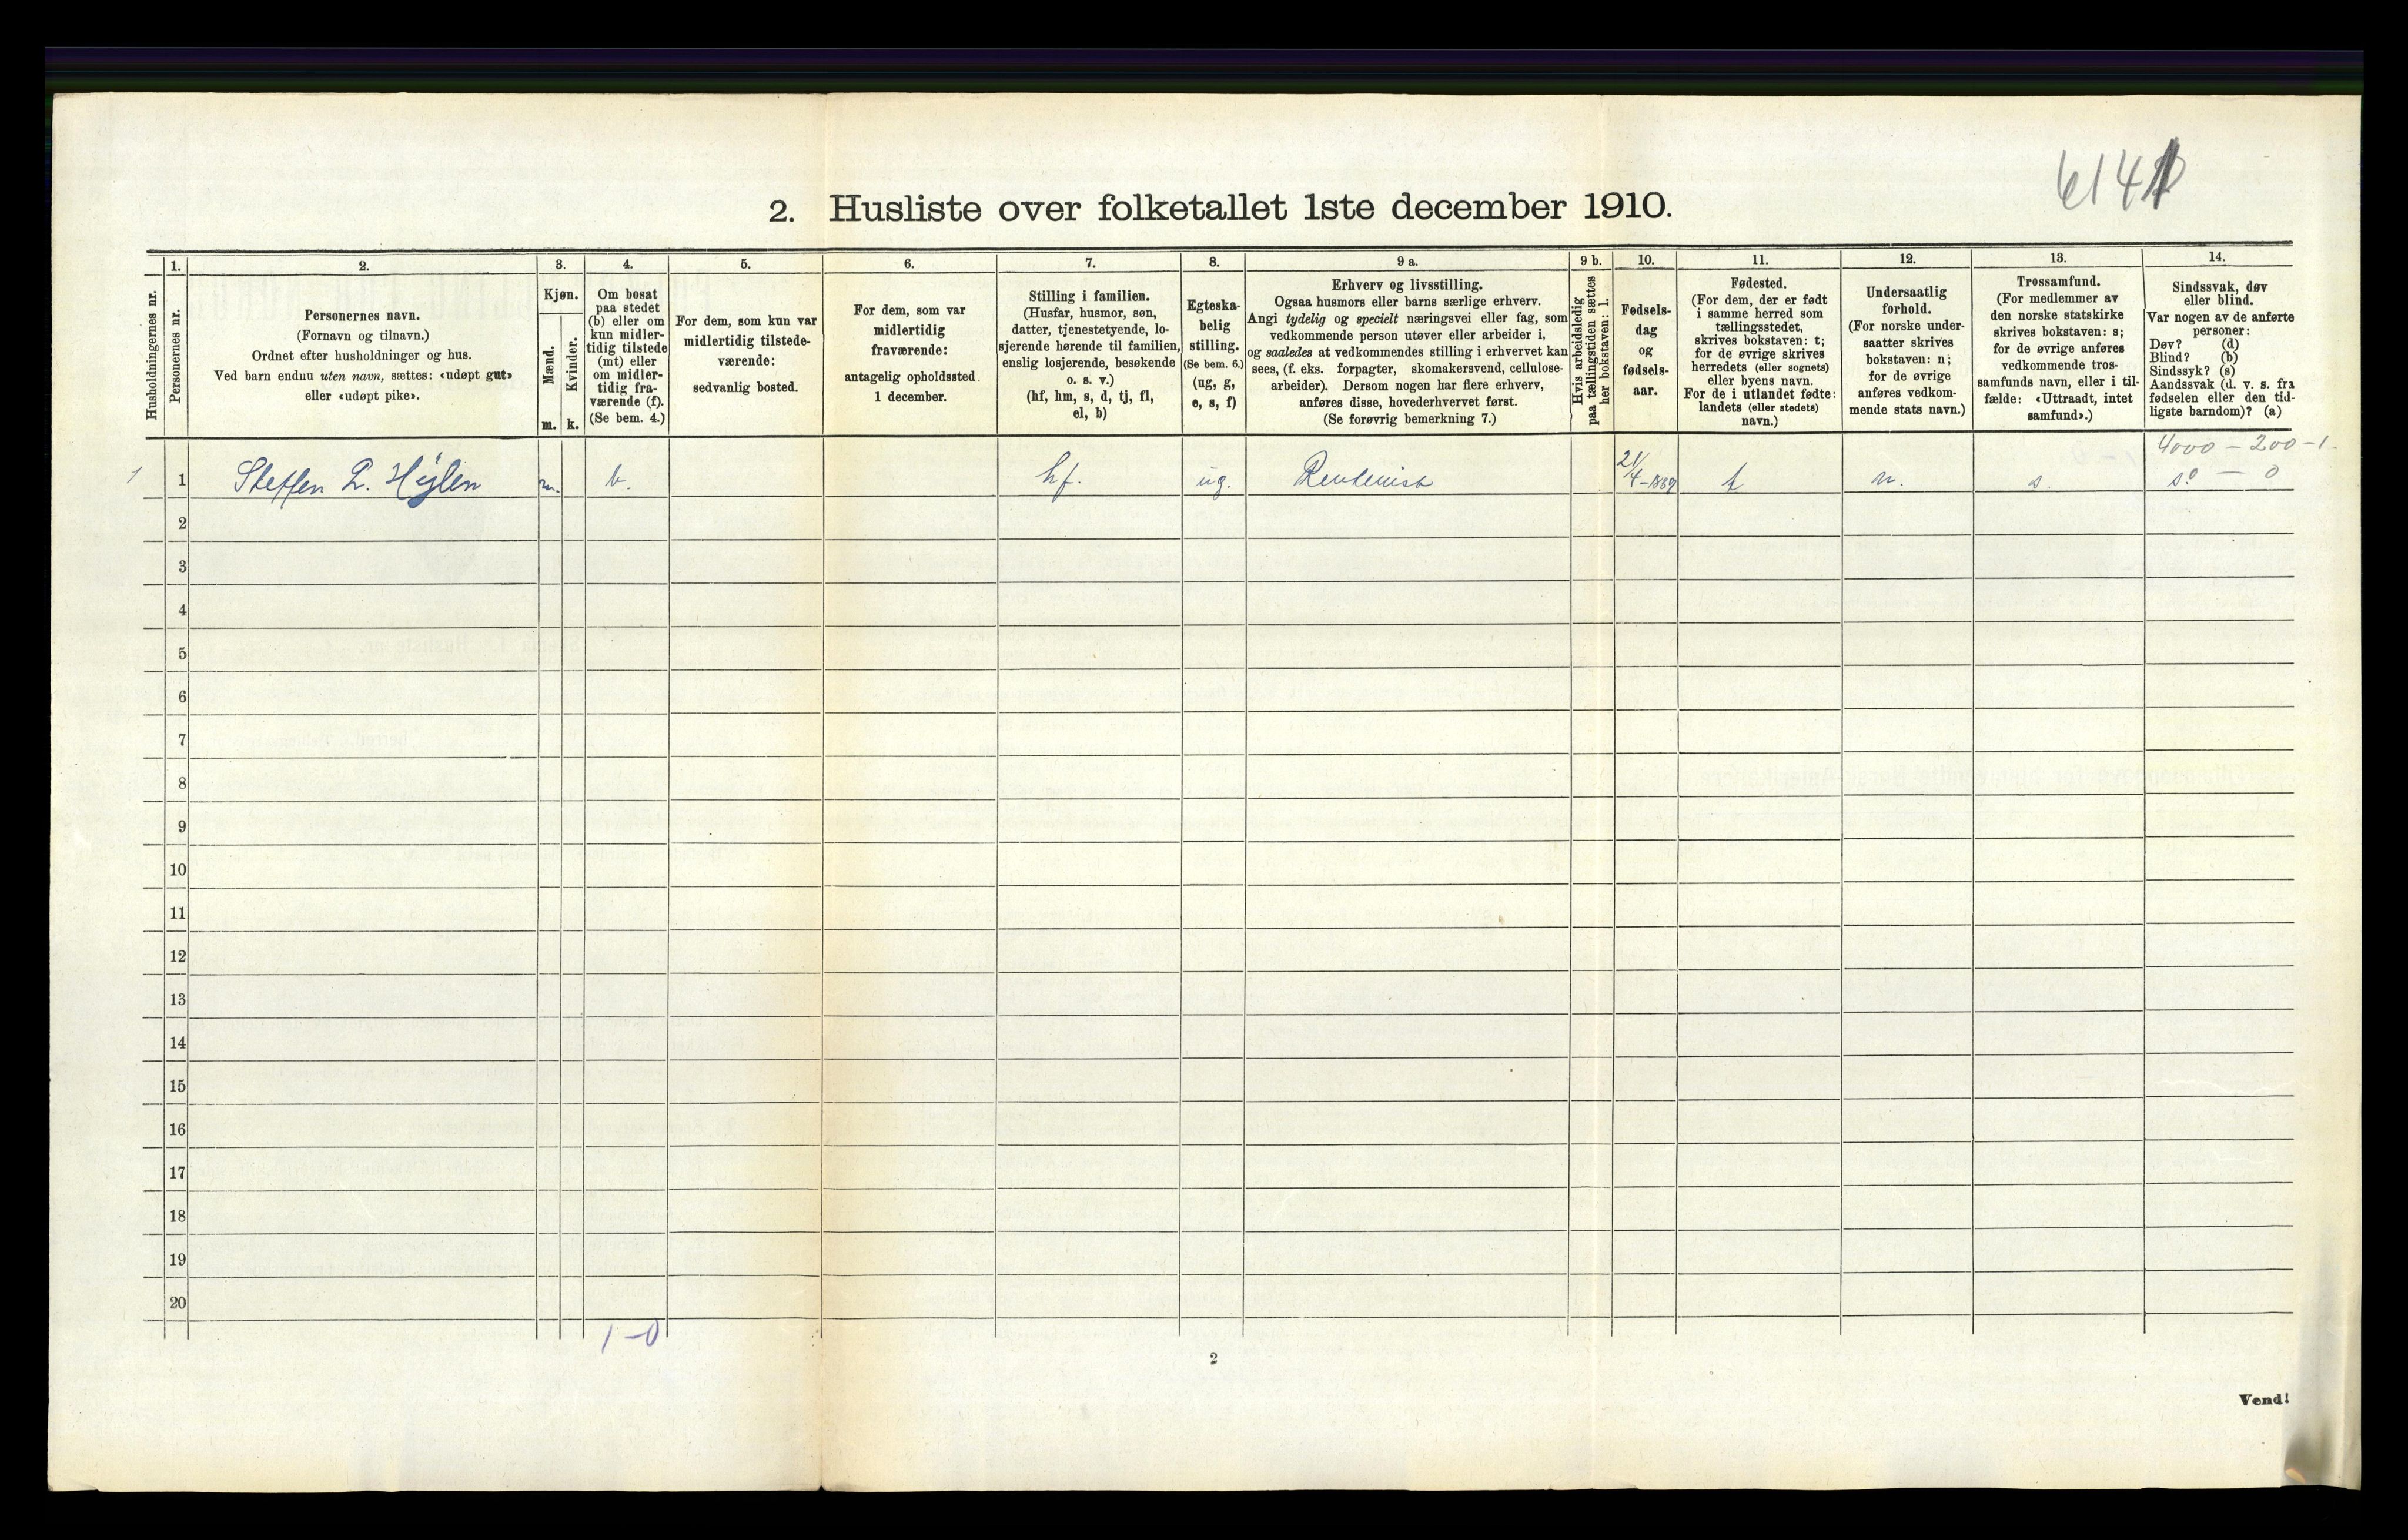 2. Husliste over folketallet 1ste december 1910.
Husholdningernes nr.
1.
Personernes nr.
2.
Personernes navn.
(Fornavn og tilnavn.)
Ordnet efter husholdninger og hus.
Ved barn endnu uten navn, sættes: «udøpt gut»
eller «udøpt pike».
3.
Kjøn.
Mænd.
Kvinder.
m. k.
4.
Om bosat
paa stedet
(b) eller om
kun midler-
tidig tilstede
(mt) eller
om midler-
tidig fra-
værende (f).
(Se bem. 4.)
5.
For dem, som kun var
midlertidig tilstede-
værende:
sedvanlig bosted.
6.
For dem, som var
midlertidig
fraværende:
antagelig opholdssted
1 december.
7.
Stilling i familien.
(Husfar, husmor, søn,
datter, tjenestetyende, lo-
sjerende hørende til familien,
enslig losjerende, besøkende
o. s. v.)
(hf, hm, s, d, tj, fl,
el, b)
8.
Egteska-
belig
stilling.
(Se bem. 6.)
(ug, g,
e, s, f)
9 a.
Erhverv og livsstilling.
Ogsaa husmors eller barns særlige erhverv.
Angi tydelig og specielt næringsvei eller fag, som
vedkommende person utøver eller arbeider i,
og saaledes at vedkommendes stilling i erhvervet kan
sees, (f. eks. forpagter, skomakersvend, cellulose-
arbeider). Dersom nogen har flere erhverv,
anføres disse, hovederhvervet først.
(Se forøvrig bemerkning 7.)
9 b.
Hvis arbeidsledig
paa tællingstiden sættes
her bokstaven: l.
10.
Fødsels-
dag
og
fødsels-
aar.
11.
Fødested.
(For dem, der er født
i samme herred som
tællingsstedet,
skrives bokstaven: t;
for de øvrige skrives
herredets (eller sognets)
eller byens navn.
For de i utlandet fødte:
landets (eller stedets)
navn.)
12.
Undersaatlig
forhold.
(For norske under-
saatter skrives
bokstaven: n;
for de øvrige
anføres vedkom-
mende stats navn.)
13.
Trossamfund.
(For medlemmer av
den norske statskirke
skrives bokstaven: s;
for de øvrige anføres
vedkommende tros-
samfunds navn, eller i til-
fælde: «Uttraadt, intet
samfund».)
14.
Sindssvak, døv
eller blind.
Var nogen av de anførte
personer:
Døv? (d)
Blind? (b)
Sindssyk? (s)
Aandssvak (d. v. s. fra
fødselen eller den tid-
ligste barndom)? (a)
4000 – 200 – 1.
1 1 m. b. hf. ug. Rentenist 21/4–1839 t n. s. – 0
2
3
4
5
6
7
8
9
10
11
12
13
14
15
16
17
18
19
20
1–0
2
Vend!